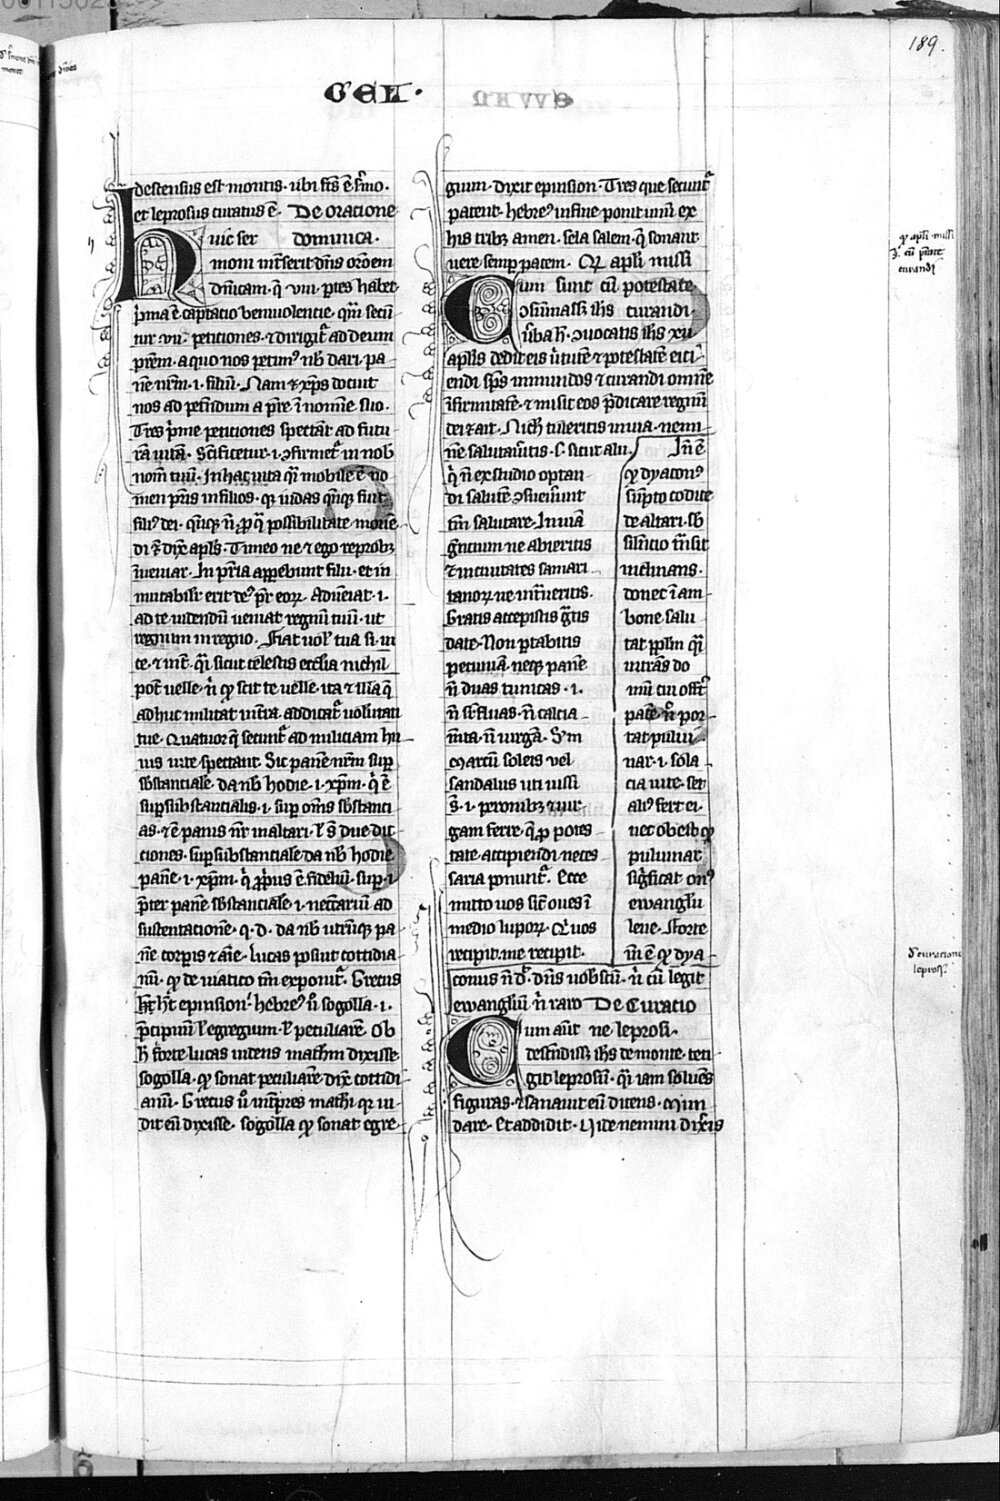 189.
GELI.
descensus est montis. ubi sił's ē sermo.
et leprosus curatus ē. De oratione
Huic ser dominica.
moni inserit dn̄s orōem
dn̄icam. q̄ vii. ptes habet
p̄ma ē captatio benivolentie. quā secun
tur. vii. petitiones. ⁊ dirigit᷑ ad deum
prēm. a quo nos petim⁹ nob̄ dari. pa
nē nr̄m. i. filiū. Nam ⁊ xp̄s docuit
nos ad petendum a pr̄e ī noīe suo.
Tres p̄me petitiones spectāt ad futu
rā vitā. Sc̄ificetur. i. ꝯfirmet᷑ in nob̄
nom̄ tuū. In hac vita q̄i mobile ē no
men pr̄is in filios. qr iudas q̄nq̄ fuit
fili⁹ dei. q̄nq̄ n̄. ꝓpt̄ q̄ possibilitatē
di ⁊ dix̄ apl̄s. Timeo ne ⁊ ego reprobꝰ
inveniar. In pr̄ia apparebunt filii. et in
mutabilit̄ erit de⁹ pr̄ eoꝝ. Adveniat. i.
ad te videndū veniat regnū tuū. ut
regnum in regno. Fiat volūtas tua si. in
ce. ⁊ in t̄. q̄i sicut celestis ecclīa nichil
pot̄ velle. n̄ qꝫ scit te velle. ita ⁊ illa q̄
adhuc militat in t̄ra addicat᷑ voluntati
tue. Quatuor q̄ secunt᷑ ad militiam hu
ius vite spectant. Sic panē nr̄m sup
sb̄stantialē. da nob̄ hodie. i. xp̄m. q̄ ē
supsubstantialis. i. sup om̄s sb̄stanti
as. ⁊ ē panis nr̄ in altari. ł s̄ due dic
ciones. supsubstantialē da nob̄ hodie
panē. i. xp̄m. q̄ ꝓprius ē fideliū. sup. i.
p̄ter panē sb̄stantialē. i. necc̄ariū ad
sustentationē. q. d. da nob̄ utrūqꝫ pa
nē corpis ⁊ aīe. Lucas posuit cottidia
nū. qꝫ de viatico tm̄ exponit᷑. Grecus
hꝫ epiusion. hebre⁹ v̄o sogolla. i.
p̄cipuū ł egregium. ł peculiarē. Ob
h̄ forte lucas videns math̄m dixisse
sogolla. qꝫ sonat peculiarē dix̄ cottidi
anū. Grecus v̄o int̄pres mathi. qr vi
dit eū dixisse. sogolla qꝫ sonat egre
gium. dixit epiusion. Tres que secunt᷑
patent. hebre⁹ in fine ponit unū ex
his tribꝫ amen. sela. salem. q̄ sonant
vere. semp. pacem. Qꝫ apl̄i missi
Cum sunt cū potestate
ꝯsūmasset ihs curandi.
v̄ba h̄. ꝯvocatis ihs xii
apl̄is dedit eis v̄tutē ⁊ potestatē eici
endi sp̄s immundos ⁊ curandi omnē
īfirmitatē. ⁊ misit eos p̄dicare regnū
dei ⁊ ait. Nich̄ tuleritis in via. nemi
nē salutav̄itis. s. sicut alii.
q̄ n̄ ex studio optan
di salutē ꝯsueūunt
tm̄ salutare. In viā
gentium ne abieritis
⁊ in civitates samari
tanoꝝ ne int̄veritis.
Gratis accepistis gratis
date. Non portabitis
pecuniā. neqꝫ panē
n̄ duas tunicas. i.
n̄ calcia
mēta. n̄ virgā. S'm
marcū soleis vel
sandalis uti iussi
s̄. i. peronibꝫ ⁊ vir
gam ferre. q̄ ꝓ potes
tate accipiendi neces
saria ponunt᷑. Ecce
mitto vos sic̄ oves ī
medio lupoꝝ. Qui vos
recipit. me recipit.
In ē
qꝫ dyacon⁹
sūpto codice
de altari. sb̄
silentio
inclinans.
donec ī am
bone salu
tat pplm̄ q̄i
intrās do
mū cui offert᷑
pacē. n̄ por
tat pului
nar. i. sola
cia vite. set
ali⁹ fert ei.
nec obest qꝫ
puluinar
significat on⁹
ewangelii
leve. Forte
in ē qꝫ dya
conus n̄ d'. dn̄s vobiscū. n̄ cū legit
ewangliū. n̄ raro De Curatio
Cum aut̄ ne leprosi.
descendisset ihs de monte. teti
git leprosū. q̄i iam solvens
figuras. ⁊ sanavit eū dicens. Mun
dare. Et addidit. Vide nemini dixeris
qꝫ apl̄i missi
s̄. cū ptāte
curandi
d' curatione
leprosi